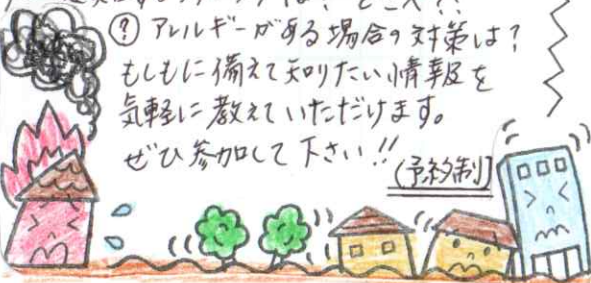 ?アレルギーがある場合の対策は?
もしもに備えて知りたい情報を
気軽に教えていただけます。
ぜひ参加して下さい!!
(予約制)